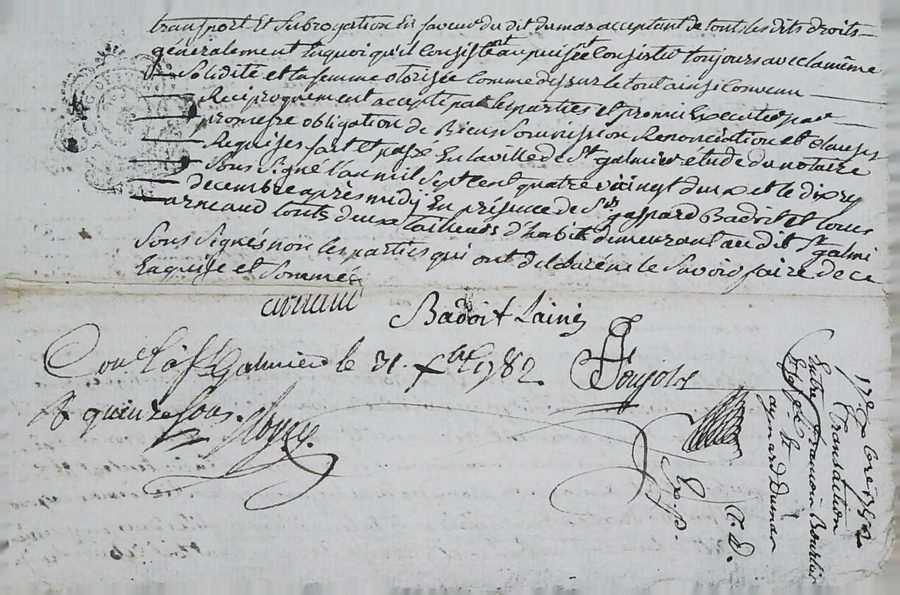 transport et subrogation en faveur du dit dumas acceptant de touts les dits droits
generalement en quoi qu'il consistent au puisse consister toujours avec la même
Solidité et la femme otorisée comme dessur le tout ainsi convenu
Reciproquement accepté par les parties et promis Executer par
promesse obligation de Biens Soumission Renonciation et clauses
Requises fait et passé En la ville de St galmier etude du notaire
Sous Signé l'an mil Sept cent quatre vingt deux et le dix
decembre après midy En présence de Srs gaspard Badoit et
arneaud touts deux tailleurs d'habit demeurant au dit St galmi
Sous Signés non les parties qui ont déclaré ne le Savoir faire de ce
Enquise et Sommés
arneaud
Badoit Lainé
Con.lé à St Galmier le 31. Xbre 1782.
R quinze sous.
Ponjols
Exp.
17 Xbre 1782
Transation
Entre francoi
et
aymard Dumas